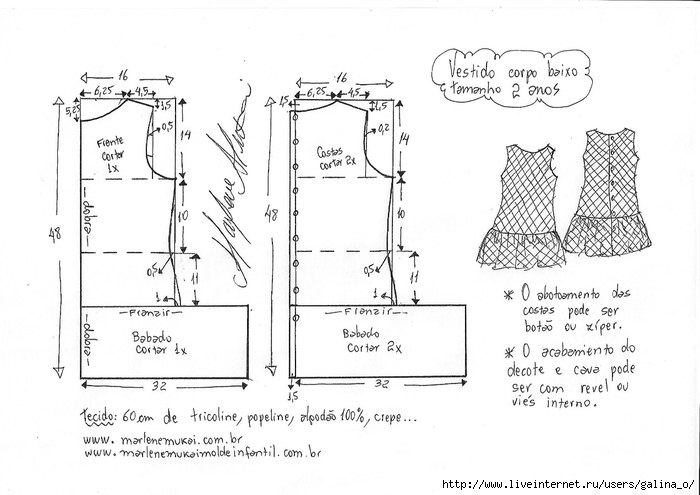 Vestido corpo baixo
tamanho 2 anos
16
6,25
4,5
5,25
1,5
0,5
14
Frente
cortar
1x
dobra
48
10
0,5
11
1
Franzir
dobra
Babado
cortar 1x
32
16
6,25
4,5
1,5
1,5
0,2
14
Costas
cortar 2x
48
10
0,5
11
1
Franzir
Babado
cortar 2x
32
1,5
* O abotoamento das
costas pode ser
botão ou zíper.
* O acabamento do
decote e cava pode
ser com revel ou
viés interno.
Tecido: 60cm de tricoline, popeline, algodão 100%, crepe...
www.marlenemukai.com.br
www.marlenemukaimoldeinfantil.com.br
http://www.liveinternet.ru/users/galina_o/